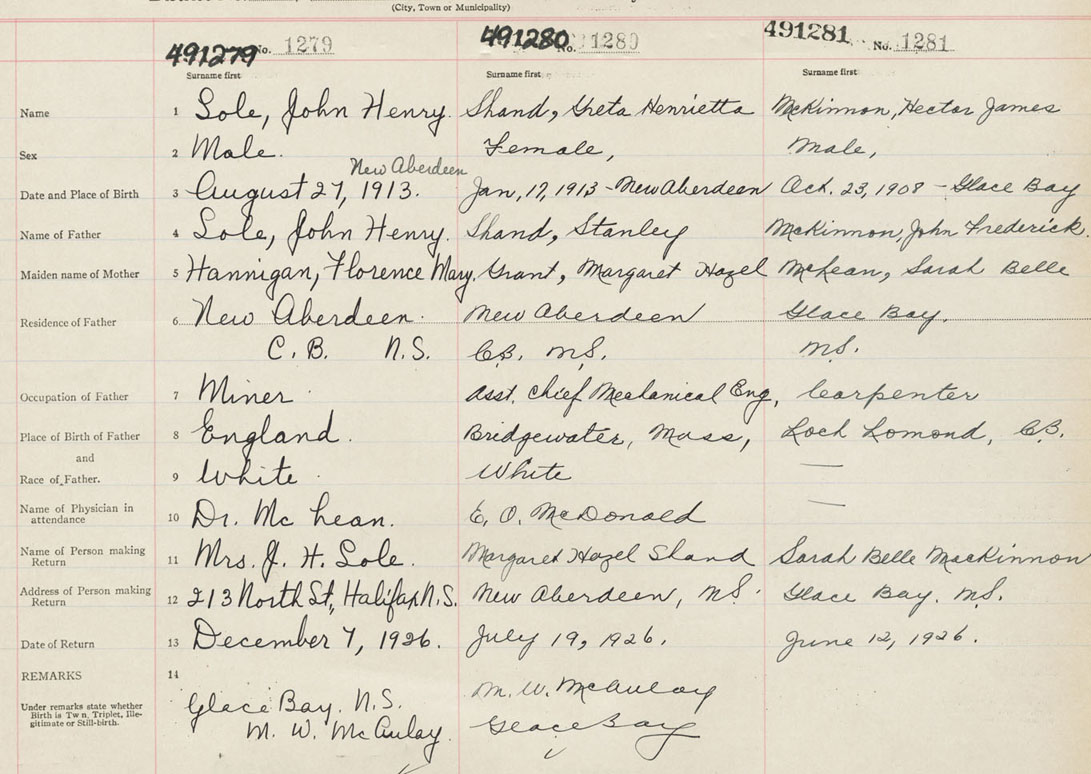 (City, Town or Municipality)
491279 No. 1279 491280 No. 1280 491281 No. 1281
Surname first Surname first Surname first
Name 1 Sole, John Henry. Shand, Greta Henrietta McKinnon, Hector James
Sex 2 Male. Female, Male,
New Aberdeen
Date and Place of Birth 3 August 27, 1913. Jan, 17, 1913 - New Aberdeen Oct. 23, 1908 - Glace Bay
Name of Father 4 Sole, John Henry. Shand, Stanley McKinnon, John Frederick.
Maiden name of Mother 5 Hannigan, Florence Mary. Grant, Margaret Hazel McLean, Sarah Belle
Residence of Father 6 New Aberdeen. New Aberdeen Glace Bay,
C. B. N.S. C.B. N.S. N.S.
Occupation of Father 7 Miner Asst. Chief Mechanical Eng, Carpenter
Place of Birth of Father 8 England. Bridgewater, Mass, Loch Lomond, C.B.
and
Race of Father. 9 White White —
Name of Physician in
attendance 10 Dr. Mc Lean. E. O. McDonald —
Name of Person making
Return 11 Mrs. J. H. Sole. Margaret Hazel Shand Sarah Belle MacKinnon
Address of Person making
Return 12 213 North St., Halifax N.S. New Aberdeen, N.S. Glace Bay. N.S.
Date of Return 13 December 7, 1926. July 19, 1926. June 12, 1926.
REMARKS 14
Under remarks state whether
Birth is Twn, Triplet, Ille-
gitimate or Still-birth.
Glace Bay. N.S. M. W. McAulay
M. W. McAulay. Glace Bay